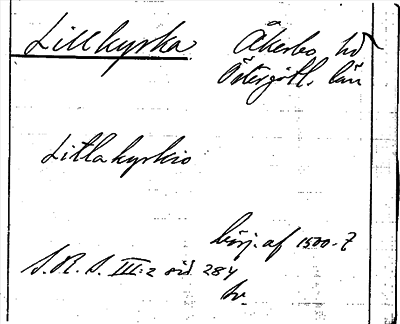 Lillkyrka Åkerbo hd
Östergötl. län
Litla kyrkio
börj. af 1500-t
S.R.S. III:2 sid 284
hr